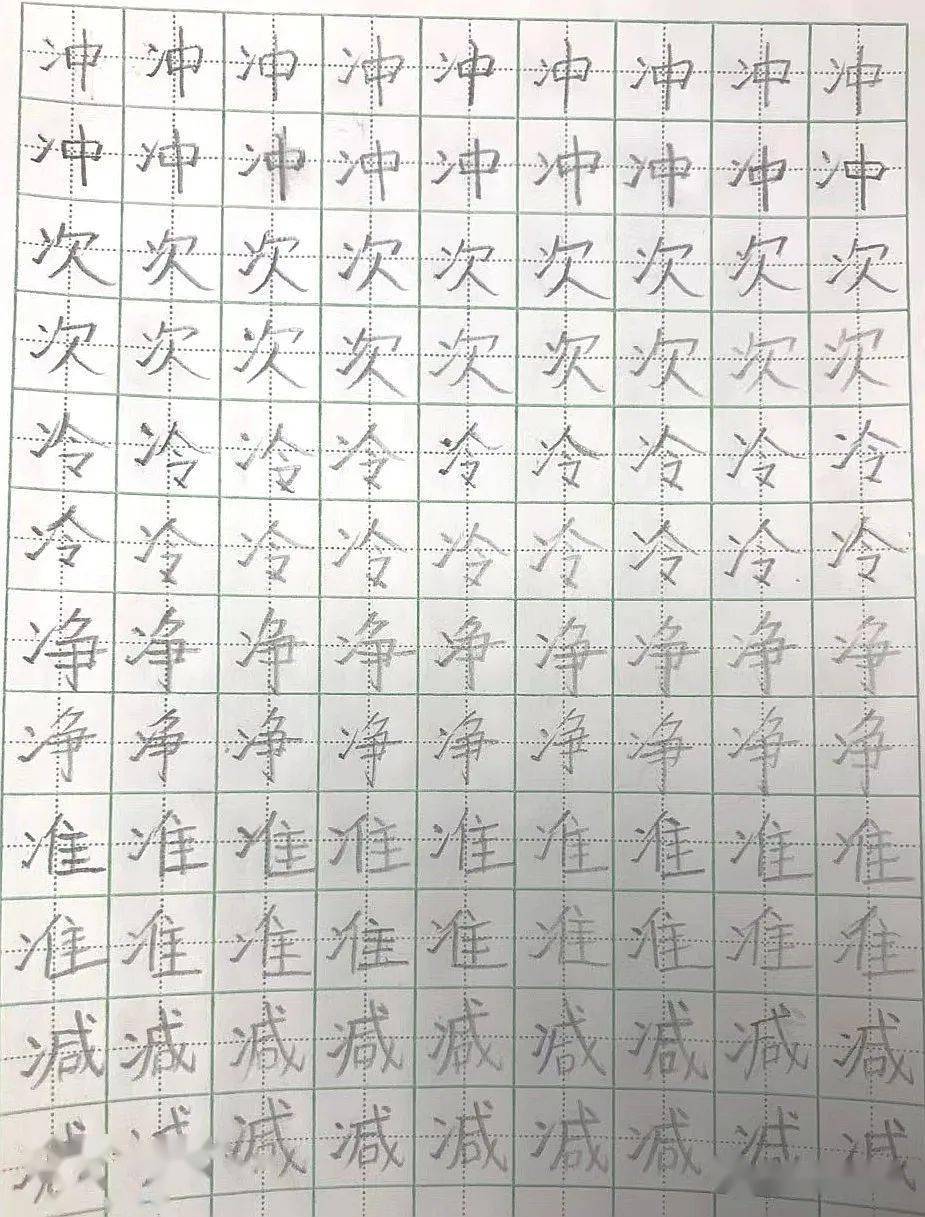 冲冲冲冲冲冲冲冲冲
冲冲冲冲冲冲冲冲冲
次次次次次次次次次
次次次次次次次次次
冷冷冷冷冷冷冷冷冷
冷冷冷冷冷冷冷冷冷
净净净净净净净净净
净净净净净净净净净
准准准准准准准准准
准准准准准准准准准
减减减减减减减减减
减减减减减减